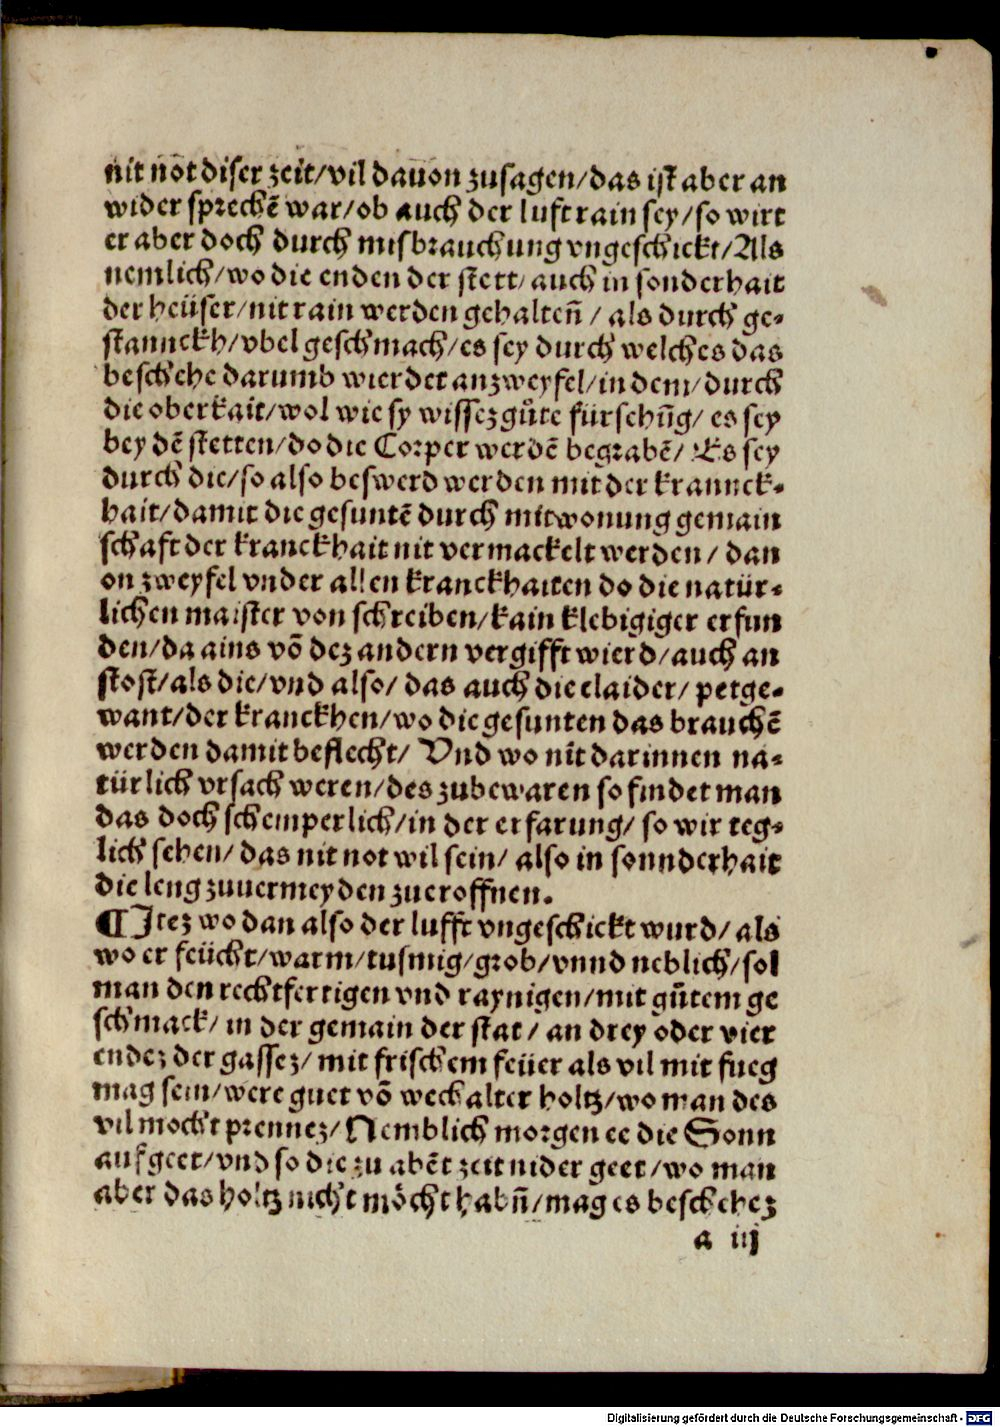 nit not diser zeit/vil dauon zusagen/das ist aber an
wider sprechē war/ob auch der luft rain sey/so wirt
er aber doch durch misbrauchung vngeschickt/Als
nemlich/wo die enden der stett/auch in sonderhait
der heüser/nit rain werden gehalten̄/als durch ge⸗
stannckh/vbel geschmach/es sey durch welches das
beschehe darumb wierdet anzweyfel/in dem/durch
die oberkait/wol wie sy wissez gůte fürsehūg/es sey
bey dē stetten/do die Corper werdē begrabē/Es sey
durch die/so also beswerd werden mit der krannck⸗
hait/damit die gesuntē durch mitwonung gemain
schaft der kranckhait nit vermackelt werden/dan
on zweyfel vnder allen kranckhaiten do die natür⸗
lichen maister von schreiben/kain klebigiger erfun
den/da ains vō dez andern vergifft wierd/auch an
stost/als die/vnd also/das auch die claider/petge⸗
want/der kranckhen/wo die gesunten das brauchē
werden damit beflecht/Vnd wo nit darinnen na⸗
türlich vrsach weren/des zubewaren so findet man
das doch schemperlich/in der erfarung/so wir teg⸗
lich sehen/das nit not wil sein/also in sonnderhait
die leng zuuermeyden zueroffnen.
¶Itez wo dan also der lufft vngeschickt wurd/als
wo er feücht/warm/tusmig/grob/vnnd neblich/sol
man den rechtfertigen vnd raynigen/mit gůtem ge
schmack/in der gemain der stat/an drey oder vier
endez der gassez/mit frischem feüer als vil mit fueg
mag sein/were guet vō weckalter holtz/wo man des
vil mocht prennez/Nemblich morgen ee die Sonn
aufgeet/vnd so die zu abēt zeit nider geet/wo man
aber das holtz nicht möcht habn̄/mag es beschehez
a iij
Digitalisierung gefördert durch die Deutsche Forschungsgemeinschaft - DFG